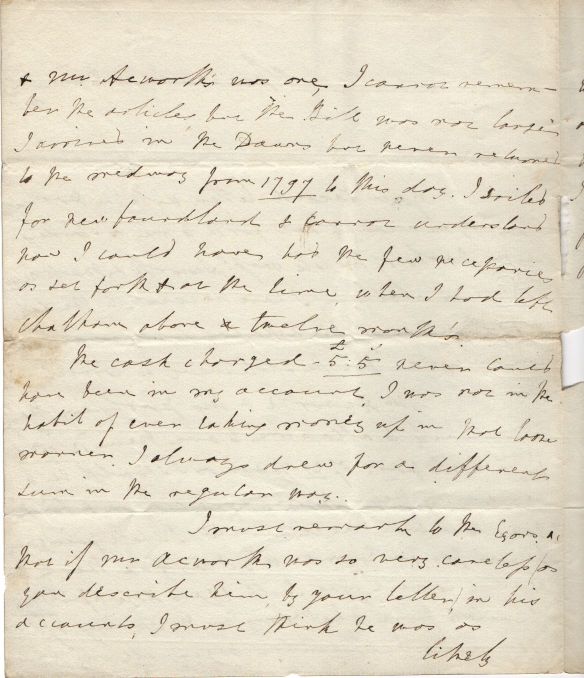 & Mr. Acworth's was one, I cannot remem-
ber the articles but the Bill was not large.
I arrived in the Downs but never returned
to the medway from 1797 to this day. I sailed
for newfoundland & cannot understand
how I could have had the few necessaries
as set forth & at the time, when I had left
Chatham above a twelve month's
The cash charged £5.5s never could
have been in my account, I was not in the
habit of ever taking money up in that loose
manner I always drew for a different
sum in the regular way.
I must remark to the
that if Mr Acworth was so very careless (as
you describe him, by your letter) in his
accounts, I must think he was as
likely